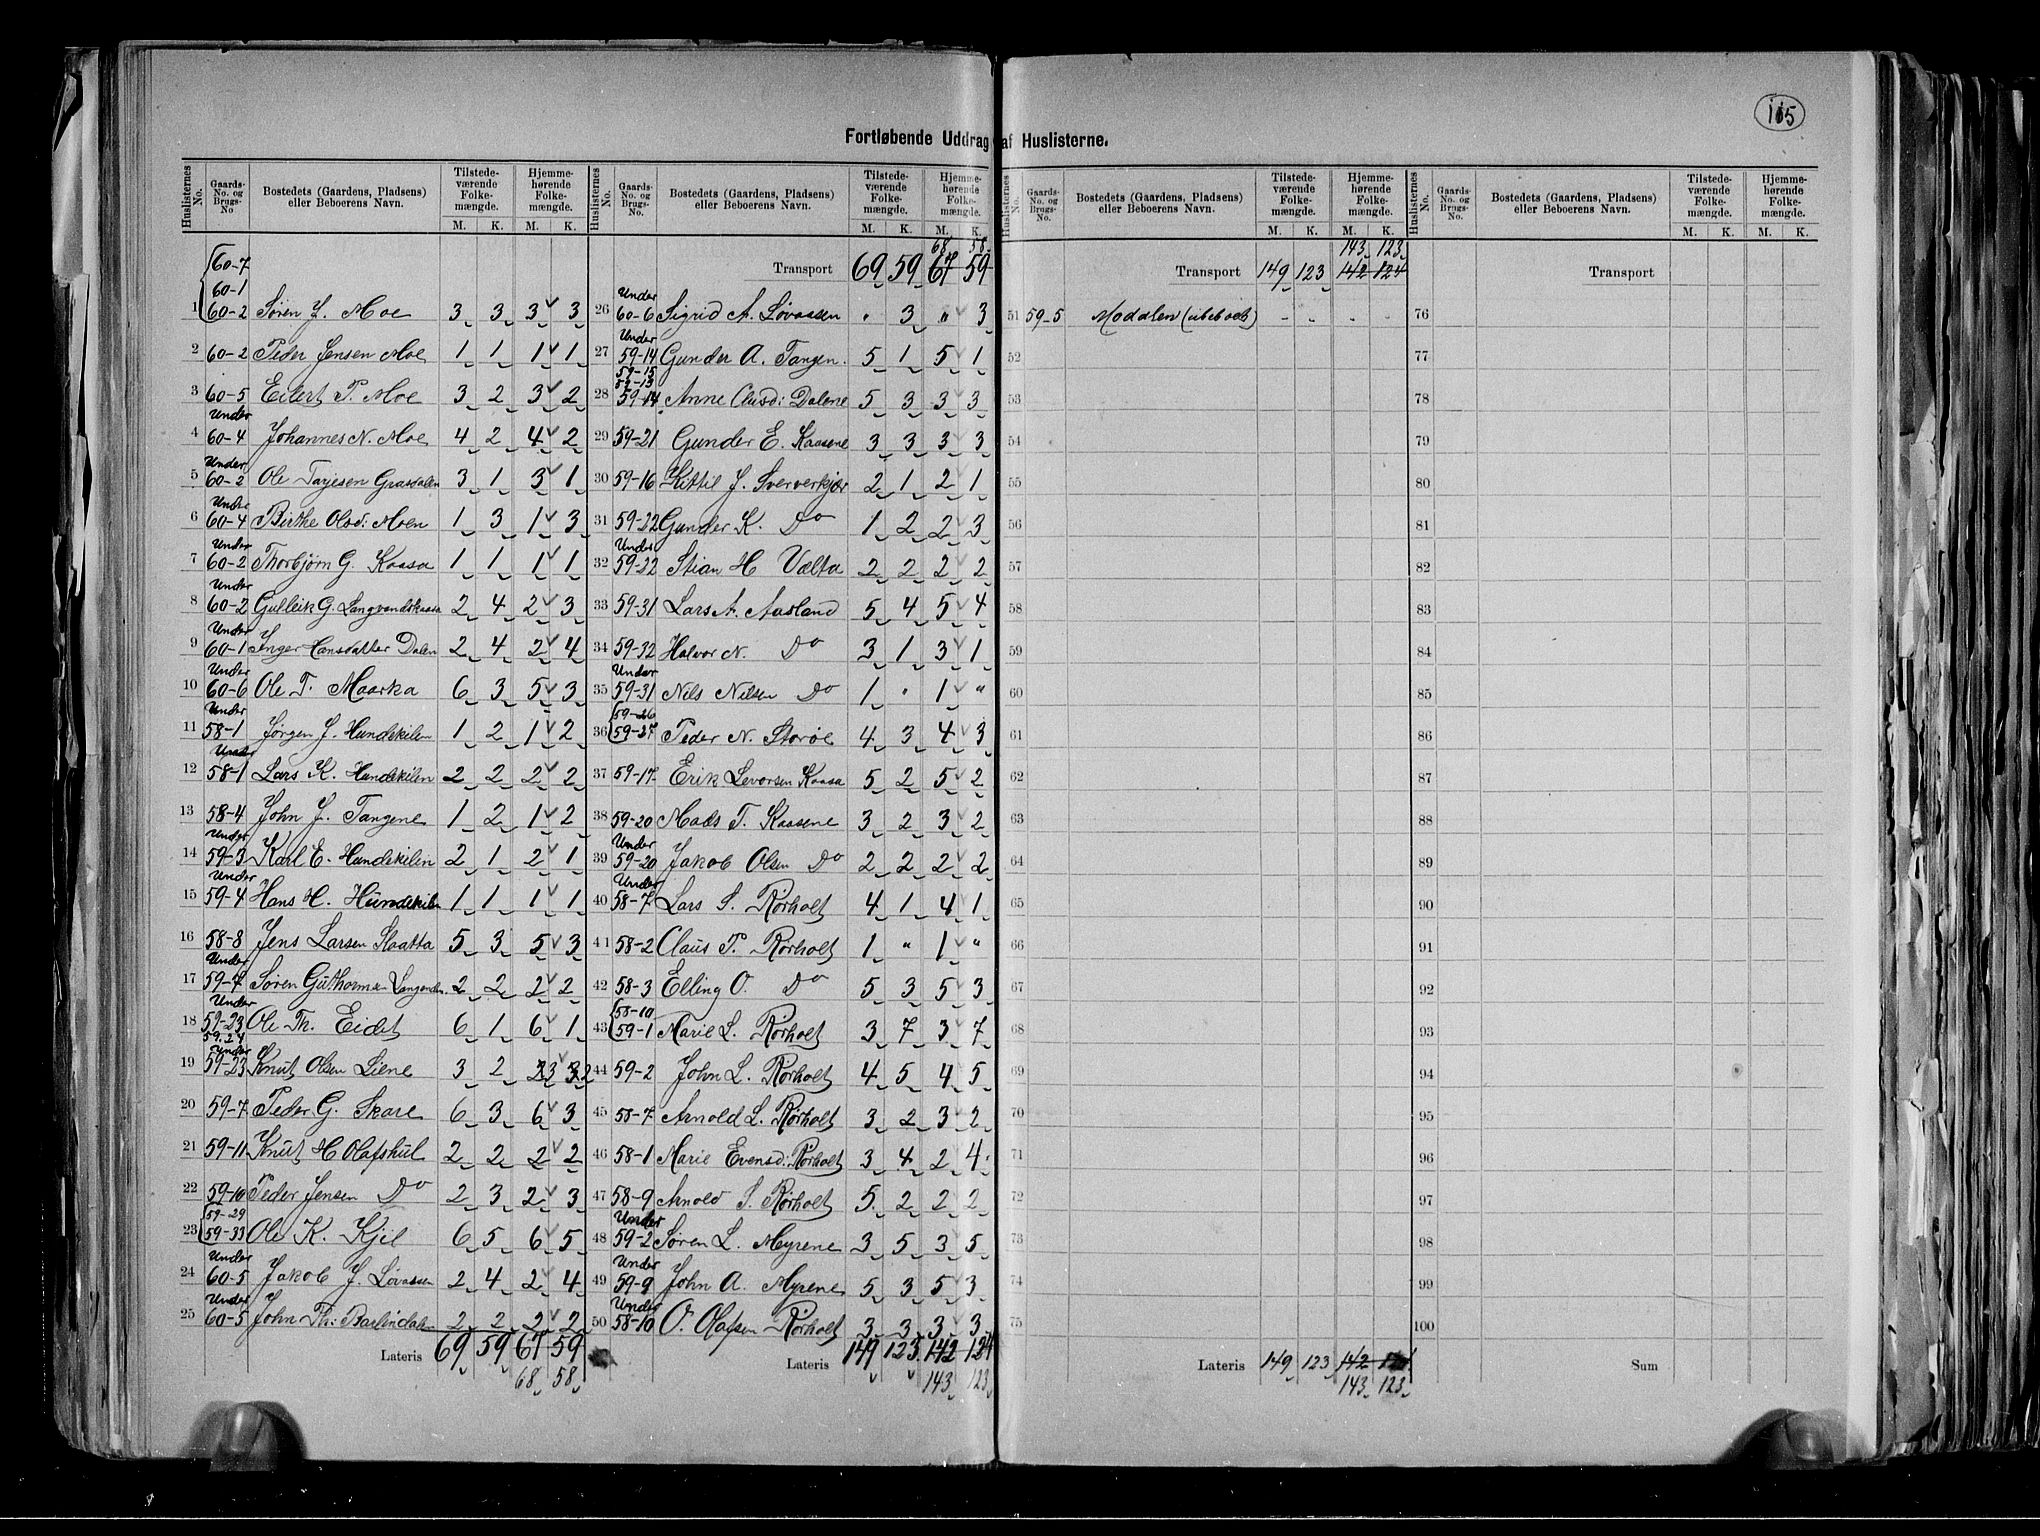 115
Fortløbende Uddrag af Huslisterne.
Huslisternes No. | Gaards-No. og Brugs-No | Bostedets (Gaardens, Pladsens) eller Beboerens Navn. | Tilstedeværende Folkemængde. M. K. | Hjemmehørende Folkemængde. M. K.
60-7
60-1
1 60-2 Søren J. Moe 3 3 3 3
2 60-2 Peder Jensen Moe 1 1 1 1
3 60-5 Eilert P. Moe 3 2 3 2
4 Under 60-4 Johannes N. Moe 4 2 4 2
5 Under 60-2 Ole Tarjesen Grasdalen 3 1 3 1
6 Under 60-4 Birthe Olsd: Moen 1 3 1 3
7 Under 60-2 Thorbjørn G. Kaasa 1 1 1 1
8 Under 60-2 Gulleik G. Langvandskaasa 2 4 2 3
9 Under 60-1 Inger Hansdatter Dalen 2 4 2 4
10 Under 60-6 Ole T. Maarka 6 3 5 3
11 Under 58-1 Jørgen J. Hundekilen 1 2 1 2
12 Under 58-1 Lars K. Hundekilen 2 2 2 2
13 58-4 John J. Tangene 1 2 1 2
14 Under 59-3 Karl E. Hundekilen 2 1 2 1
15 Under 59-4 Hans H. Hundekilen 1 1 1 1
16 58-8 Jens Larsen Slaatta 5 3 5 3
17 Under 59-7 Søren Guthormsen 2 2 2 2
18 Under 59-23 59-24 Ole Th. Eidet 6 1 6 1
19 Under 59-23 Knut Olsen Liene 3 2 3 2
20 59-7 Peder G. Skare 6 3 6 3
21 59-11 Knut H Olafshul 2 2 2 2
22 59-10 Peder Jensen Do 2 3 2 3
23 59-29 59-33 Ole K. Kjil 6 5 6 5
24 Under 60-5 Jakob J. Løvassen 2 4 2 4
25 Under 60-5 John Th: Barlindalen 2 2 2 2
Lateris 69 59 67 59
68 58
Huslisternes No. | Gaards-No. og Brugs-No. | Bostedets (Gaardens, Pladsens) eller Beboerens Navn. | Tilstedeværende Folkemængde. M. K. | Hjemmehørende Folkemængde. M. K.
68 58
Transport 69 59 67 59
26 Under 60-6 Sigrid A. Løvaasen " 3 " 3
27 Under 59-14 Gunder A. Tangen. 5 1 5 1
28 59-15 59-13 59-14 Anne Clausd: Dalene 5 3 3 3
29 59-21 Gunder E. Kaasene 3 3 3 3
30 59-16 Kittil J. Sververkjær 2 1 2 1
31 59-22 Gunder K. Do 1 2 2 3
32 Under 59-22 Stian H Vælta 2 2 2 2
33 59-31 Lars A. Aasland 5 4 5 4
34 59-32 Halvor N. Do 3 1 3 1
35 Under 59-31 Nils Nilsen Do 1 " 1 "
36 59-26 59-27 Peder N. Storøe 4 3 4 3
37 59-17 Erik Levorsen Kaasa 5 2 5 2
38 59-20 Mads T. Kaasene 3 2 3 2
39 Under 59-20 Jakob Olsen Do 2 2 2 2
40 Under 58-7 Lars S. Rørholt 4 1 4 1
41 58-2 Claus P. Rørholt 1 " 1 "
42 58-3 Elling O. Do 5 3 5 3
43 58-10 59-1 Marie L. Rørholt 3 7 3 7
44 59-2 John L. Rørholt 4 5 4 5
45 58-7 Arnold L. Rørholt 3 2 3 2
46 58-1 Marie Evensd: Rørholt 3 4 2 4
47 58-9 Arnold S. Rørholt 5 2 2 2
48 Under 59-2 Søren L. Myrene 3 5 3 5
49 Under 59-9 John A. Myrene 5 3 5 3
50 Under 58-10 O. Olafsen Rørholt 3 3 3 3
Lateris 149 123 142 124
143 123
Huslisternes No. | Gaards-No. og Brugs-No. | Bostedets (Gaardens, Pladsens) eller Beboerens Navn. | Tilstedeværende Folkemængde. M. K. | Hjemmehørende Folkemængde. M. K.
143 123
Transport 149 123 142 124
51 59-5 Modalen (ubeboet) - - - -
52
53
54
55
56
57
58
59
60
61
62
63
64
65
66
67
68
69
70
71
72
73
74
75
Lateris 149 123 142 124
143 123
Huslisternes No. | Gaards-No. og Brugs-No. | Bostedets (Gaardens, Pladsens) eller Beboerens Navn. | Tilstedeværende Folkemængde. M. K. | Hjemmehørende Folkemængde. M. K.
Transport
76
77
78
79
80
81
82
83
84
85
86
87
88
89
90
91
92
93
94
95
96
97
98
99
100
Sum